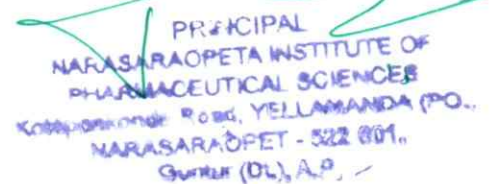 PRINCIPAL
NARASARAOPETA INSTITUTE OF
PHARMACEUTICAL SCIENCES
Kotappakonda Road, YELLAMANDA (PO.,
NARASARAOPET - 522 601.,
Guntur (Dt.), A.P.